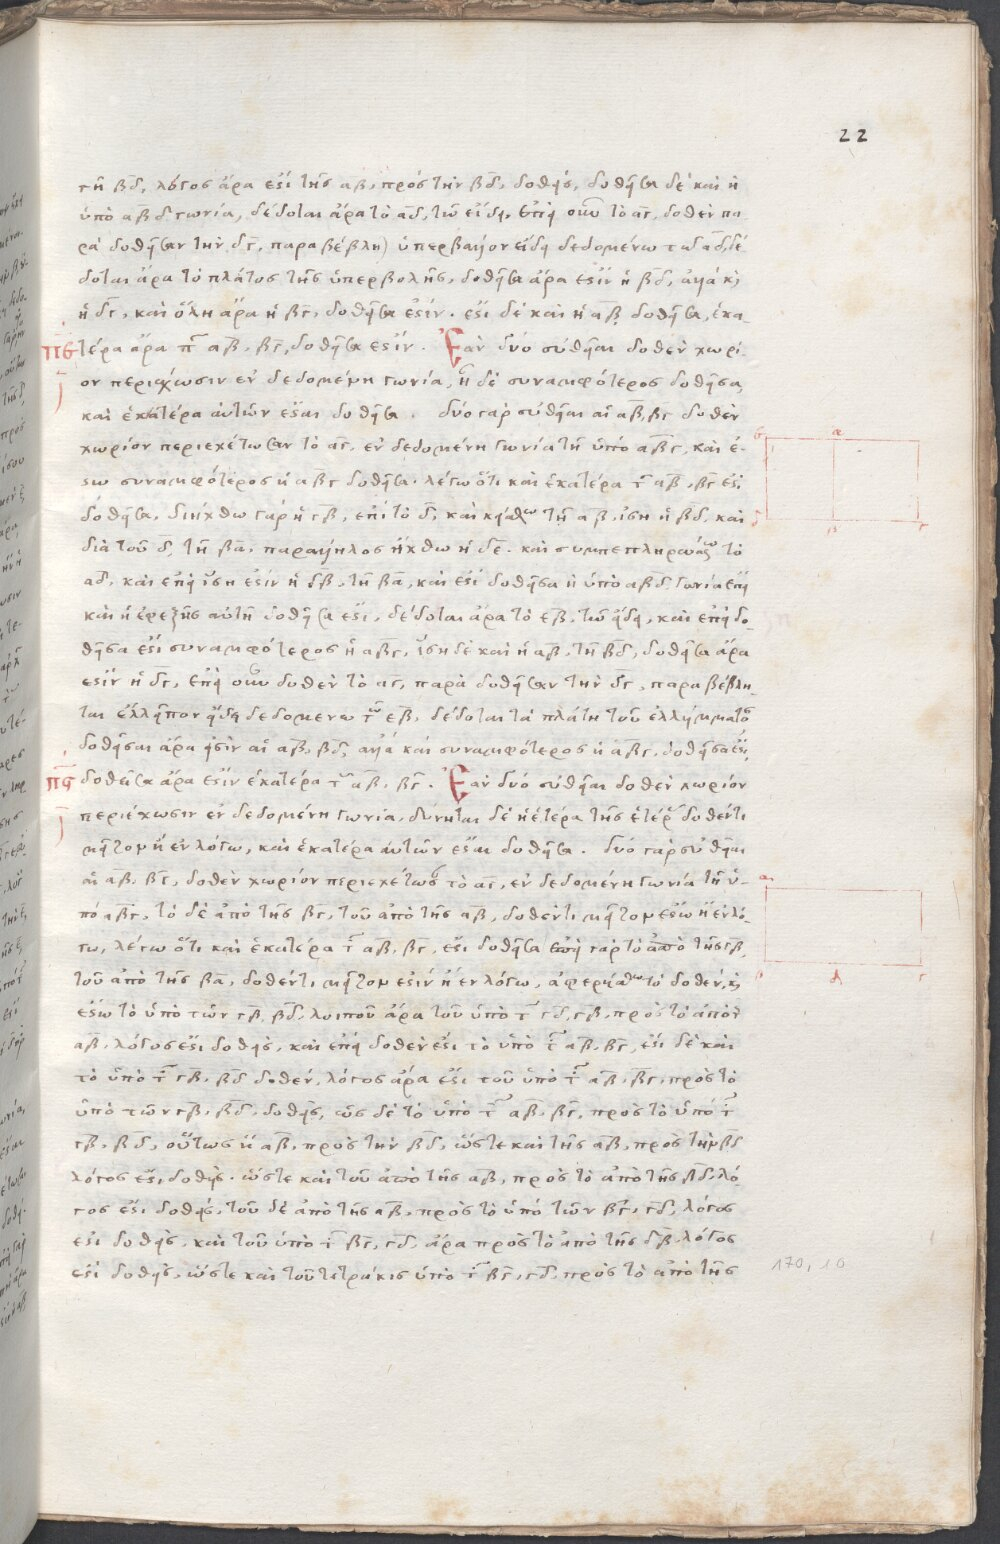 22
τῇ βδ, λόγος ἄρα ἐστὶ τῆς αβ, πρὸς τὴν βδ, δοθείς, δοθεῖσα δὲ καὶ ἡ
ὑπὸ αβδ γωνία, δέδοται ἄρα τὸ αδ, τῷ εἴδει, ἐπεὶ οὖν τὸ αγ, δοθὲν πα
ρὰ δοθεῖσαν τὴν δγ, παραβέβληται ὑπερβάλλον εἴδει δεδομένω τῷ αδ, δέ
δοται ἄρα τὸ πλάτος τῆς ὑπερβολῆς, δοθεῖσα ἄρα ἐστὶν ἡ βδ, ἀλλὰ καὶ
ἡ δγ, καὶ ὅλη ἄρα ἡ βγ, δοθεῖσα ἐστίν. ἔστι δὲ καὶ ἡ αβ δοθεῖσα, ἑκα
πε τέρα ἄρα τῶν αβ, βγ, δοθεῖσα ἐστίν. Ἐὰν δύο εὐθεῖαι δοθὲν χωρί
ον περιέχωσιν ἐν δεδομένη γωνία, ἡ δὲ συναμφότερος δοθεῖσα,
καὶ ἑκατέρα αὐτῶν ἔσται δοθεῖσα. δύο γὰρ εὐθεῖαι αἱ αβ, βγ δοθὲν
χωρίον περιεχέτωσαν τὸ αγ, ἐν δεδομένη γωνία τῇ ὑπὸ αβγ, καὶ ἔ
στω συναμφότερος ἡ αβγ δοθεῖσα. λέγω ὅτι καὶ ἑκατέρα τῶν αβ, βγ ἐστι
δοθεῖσα. διήχθω γὰρ ἡ γβ, ἐπὶ τὸ δ, καὶ κείσθω τῇ αβ, ἴση ἡ βδ, καὶ
διὰ τοῦ δ, τῇ βα, παράλληλος ἤχθω ἡ δε. καὶ συμπεπληρώσθω τὸ
αδ, καὶ ἐπεὶ ἴση ἐστὶν ἡ δβ, τῇ βα, καὶ ἐστὶ δοθεῖσα ἡ ὑπὸ αβδ γωνία ἐπεὶ
καὶ ἡ ἐφεξῆς αὐτῇ δοθεῖσα ἐστι, δέδοται ἄρα τὸ εβ, τῷ εἴδει, καὶ ἐπεὶ δο
θεῖσα ἐστὶ συναμφότερος ἡ αβγ, ἴση δὲ καὶ ἡ αβ, τῇ βδ, δοθεῖσα ἄρα
ἐστὶν ἡ δγ, ἐπεὶ οὖν δοθὲν τὸ αγ, παρὰ δοθεῖσαν τὴν δγ, παραβέβλη
ται ἐλλεῖπον εἴδει δεδομένω τῷ εβ, δέδοται τὰ πλάτη τοῦ ἐλλείμματος
δοθεῖσαι ἄρα εἰσὶν αἱ αβ, βδ, ἀλλὰ καὶ συναμφότερος ἡ αβγ, δοθεῖσα ἐστι,
πς δοθεῖσα ἄρα ἐστὶν ἑκατέρα τῶν αβ, βγ. Ἐὰν δύο εὐθεῖαι δοθὲν χωρίον
περιέχωσιν ἐν δεδομένη γωνία, δύνηται δὲ ἡ ἑτέρα τῆς ἑτέρας δοθέντι
μεῖζον ἢ ἐν λόγω, καὶ ἑκατέρα αὐτῶν ἔσται δοθεῖσα. δύο γὰρ εὐθεῖαι
αἱ αβ, βγ, δοθὲν χωρίον περιεχέτωσαν τὸ αγ, ἐν δεδομένη γωνία τῇ ὑ
πὸ αβγ, τὸ δὲ ἀπὸ τῆς βγ, τοῦ ἀπὸ τῆς αβ, δοθέντι μεῖζον ἔστω ἢ ἐν λό
γω, λέγω ὅτι καὶ ἑκατέρα τῶν αβ, βγ, ἐστὶ δοθεῖσα ἐπεὶ γὰρ τὸ ἀπὸ τῆς γβ,
τοῦ ἀπὸ τῆς βα, δοθέντι μεῖζον ἐστὶν ἢ ἐν λόγω, ἀφηρήσθω τὸ δοθέν, καὶ
ἔστω τὸ ὑπὸ τῶν γβ, βδ, λοιποῦ ἄρα τοῦ ὑπὸ τῶν γδ, γβ, πρὸς τὸ ἀπὸ τῆς
αβ, λόγος ἐστὶ δοθείς, καὶ ἐπεὶ δοθὲν ἐστὶ τὸ ὑπὸ τῶν αβ, βγ, ἔστι δὲ καὶ
τὸ ὑπὸ τῶν γβ, βδ δοθέν, λόγος ἄρα ἐστὶ τοῦ ὑπὸ τῶν αβ, βγ, πρὸς τὸ
ὑπὸ τῶν γβ, βδ, δοθείς, ὡς δὲ τὸ ὑπὸ τῶν αβ, βγ, πρὸς τὸ ὑπὸ τῶν
γβ, βδ, οὕτως ἡ αβ, πρὸς τὴν βδ, ὥστε καὶ τῆς αβ, πρὸς τὴν βδ
λόγος ἐστὶ δοθείς. ὥστε καὶ τοῦ ἀπὸ τῆς αβ, πρὸς τὸ ἀπὸ τῆς βδ, λό
γος ἐστὶ δοθείς, τοῦ δὲ ἀπὸ τῆς αβ, πρὸς τὸ ὑπὸ τῶν βγ, γδ, λόγος
ἐστὶ δοθείς, καὶ τοῦ ὑπὸ τῶν βγ, γδ, ἄρα πρὸς τὸ ἀπὸ τῆς δβ, λόγος
ἐστὶ δοθείς, ὥστε καὶ τοῦ τετράκις ὑπὸ τῶν βγ, γδ, πρὸς τὸ ἀπὸ τῆς
170, 10